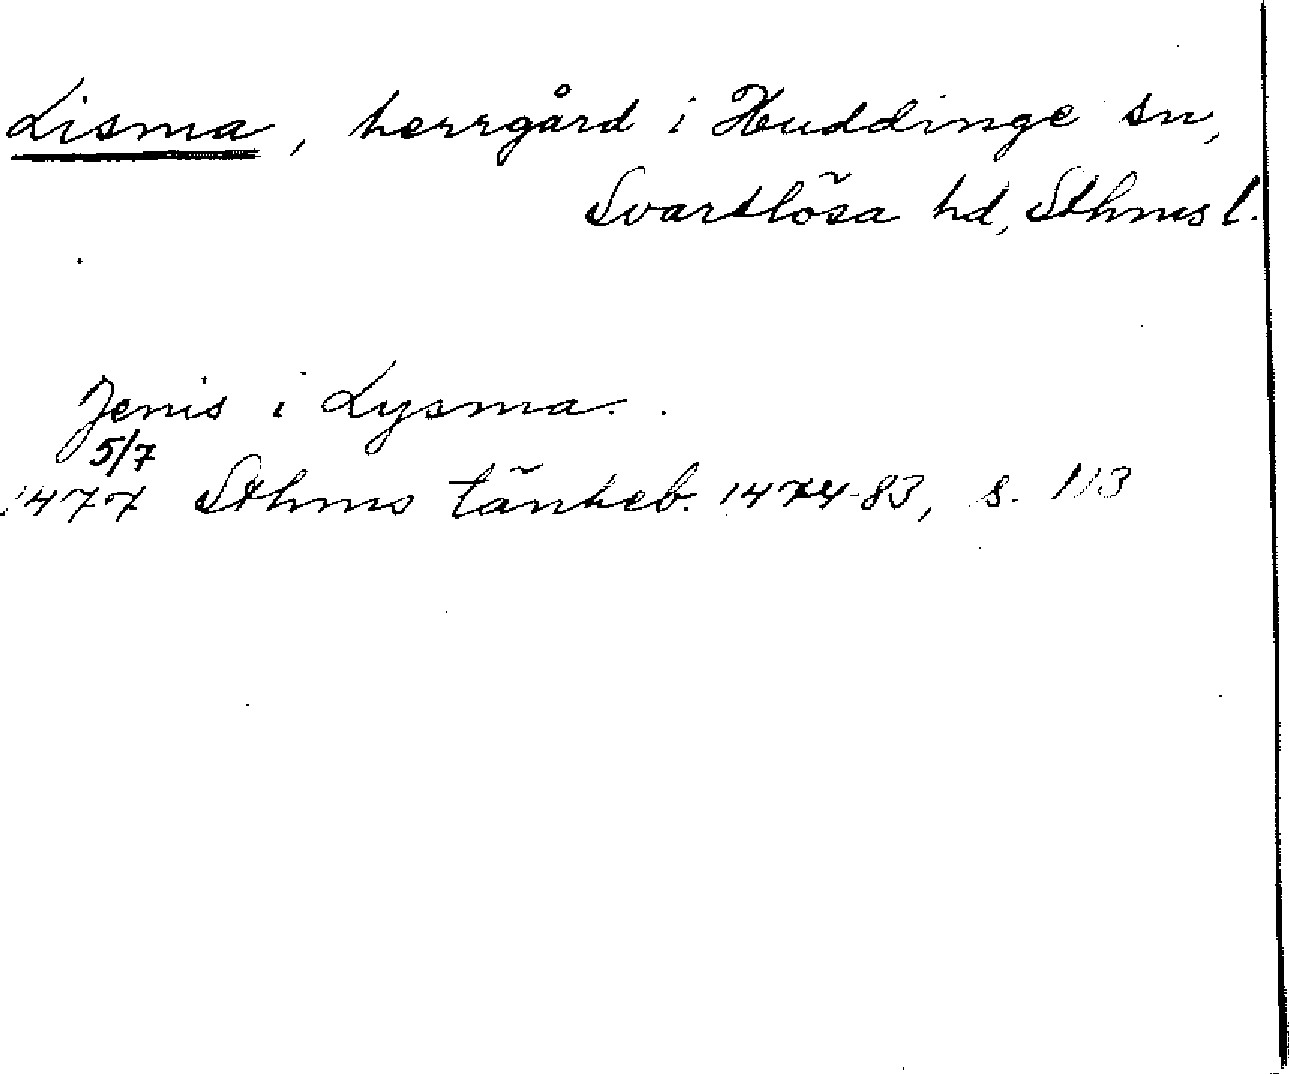 Lisma, herrgård i Huddinge sn,
Svartlösa hd, Sthms l.
Jenis i Lysma.
5/7
1477 Sthms tänkeb. 1474-83, s. 113